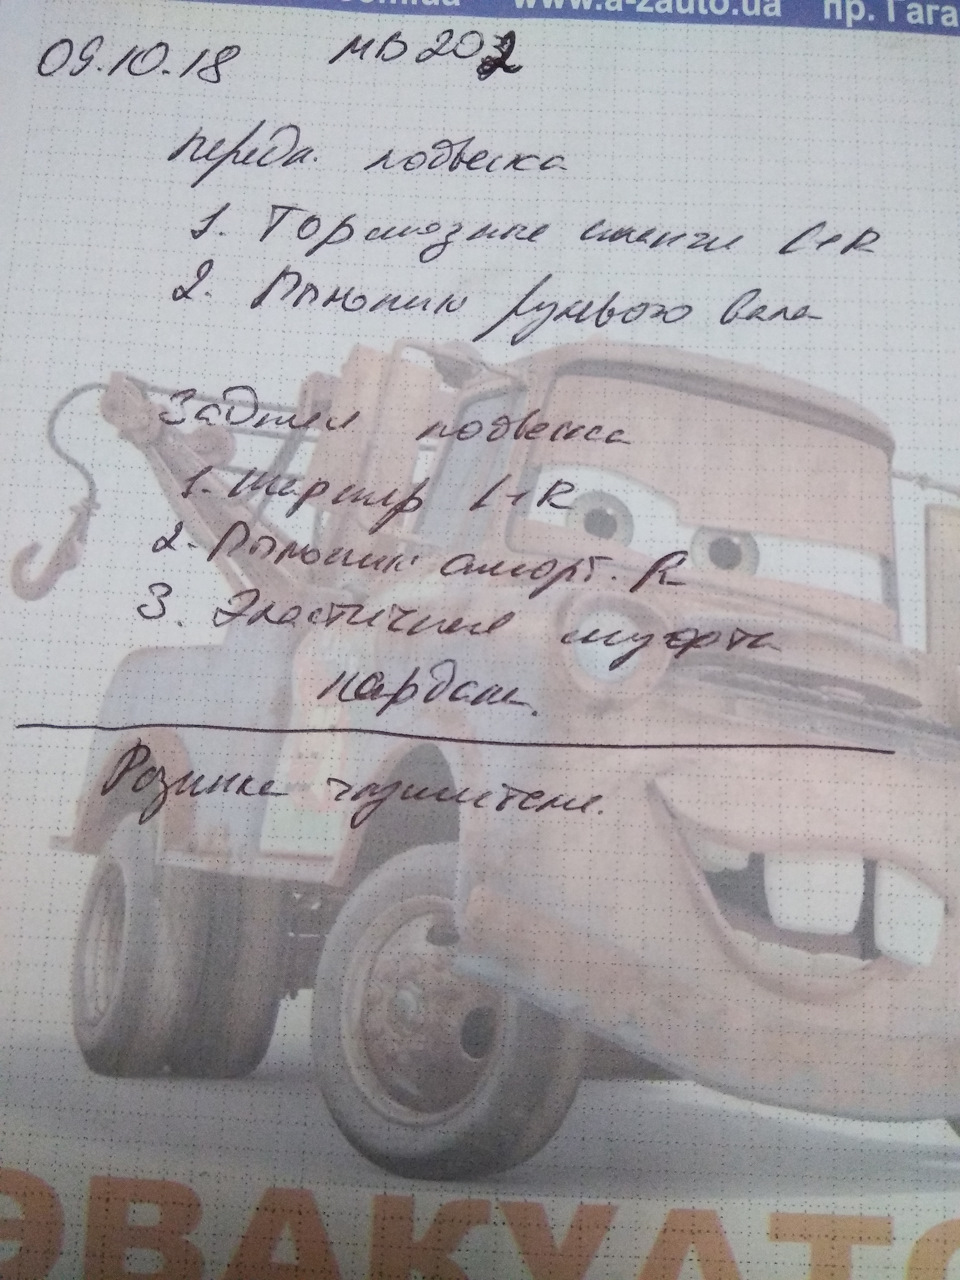 www.a-zauto.ua пр. Гага
09.10.18 МВ 202
передн. подвеска
1. Тормозные шланги L+R
2. Пыльник рулевого вала
Задняя подвеска
1. Шарнир L+R
2. Пыльник аморт. R
3. Эластичная муфта
кардан.
Резинка глушителя.
ЭВАКУАТО